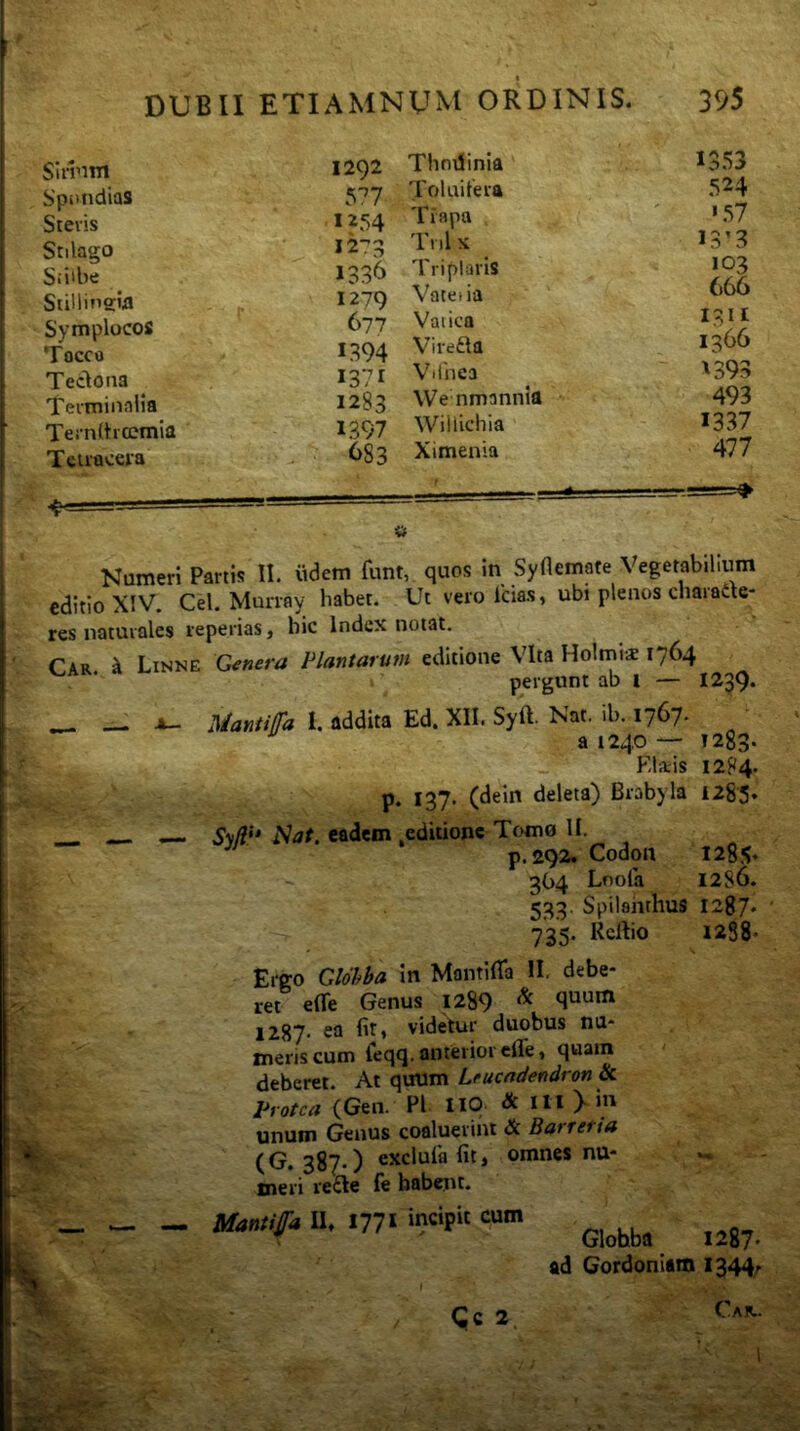 DUBII ETIAMNUM ORDINIS. 395
Sirium 1292
Spondias 577
Steris 1254
Stilago 1273
Stilbe 1336
Stillingia 1279
Symplocos 677
Tacca 1394
Tectona 1371
Terminalia 1283
Ternſtrœmia 1397
Tetracera 683
Thouinia 1353
Toluifera 524
Trapa 157
1313
Triplaris 103
Vateria 666
Vatica 1311
Virecta 1366
Viſnea 1393
Weinmannia 493
Willichia 1337
Ximenia 477
Numeri Partis II. iidem ſunt, quos in Syſtemate Vegetabilium
editio XIV. Cel. Murray habet. Ut vero ſcias, ubi plenos characte-
res naturales reperias, hic Index notat.
CAR. à LINNE Genera Plantarum editione VIta Holmiæ 1764
pergunt ab 1 — 1239.
— — — Mantiſſa I. addita Ed. XII. Syſt. Nat. ib. 1767.
a 1240 — 1283.
Elæis 1284.
p. 137. (dein deleta) Brabyla 1285.
— — — Syſtis Nat. eadem editione Tomo II.
p. 292. Codon 1285.
364 Looſa 1286.
533. Spilanthus 1287.
735. Reſtio 1288.
Ergo Globba in Mantiſſa II. debe-
ret eſſe Genus 1289 & quum
1287. ea ſit, videtur duobus nu-
meris cum ſeqq. anterior eſſe, quam
deberet. At quum Leucadendron &
Protea (Gen. Pl 110 & 111) in
unum Genus coaluerint & Barreria
(G. 387.) excluſa ſit, omnes nu-
meri recte ſe habent.
— — — Mantiſſa II. 1771 incipit cum
Globba 1287.
ad Gordoniam 1344.
Cc 2 CAR.